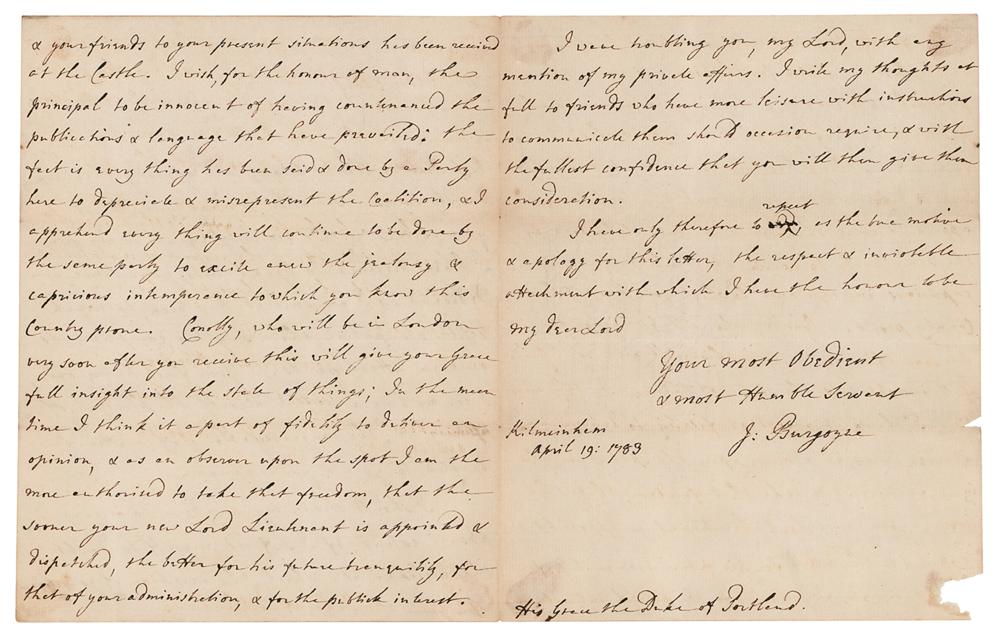 & your friends to your present situations has been received
at the Castle. I wish, for the honour of man, the
principal to be innocent of having countenanced the
publications & language that have prevailed: the
fact is every thing has been said & done by a Party
here to depreciate & misrepresent the Coalition, & I
apprehend every thing will continue to be done by
the same party to excite anew the jealousy &
capricious intemperance to which you know this
Country prone. Conolly, who will be in London
very soon after you receive this will give your Grace
full insight into the state of things; In the mean
time I think it a part of fidelity to deliver an
opinion, & as an observer upon the spot I am the
more authorised to take that freedom, that the
sooner your new Lord Lieutenant is appointed &
dispatched, the better for his future tranquility, for
that of your administration, & for the publick interest.
I wave troubling you, my Lord, with any
mention of my private affairs. I write my thoughts at
full to friends who have more leisure with instructions
to communicate them should occasion require, & with
the fullest confidence that you will then give them
consideration.
repeat
I have only therefore to , as the true motive
& apology for this letter, the respect & inviolable
attachment with which I have the honour to be
my dear Lord
Your most Obedient
& most Humble Servant
J: Burgoyne
Kilmainham
April 19: 1783
His Grace the Duke of Portland.